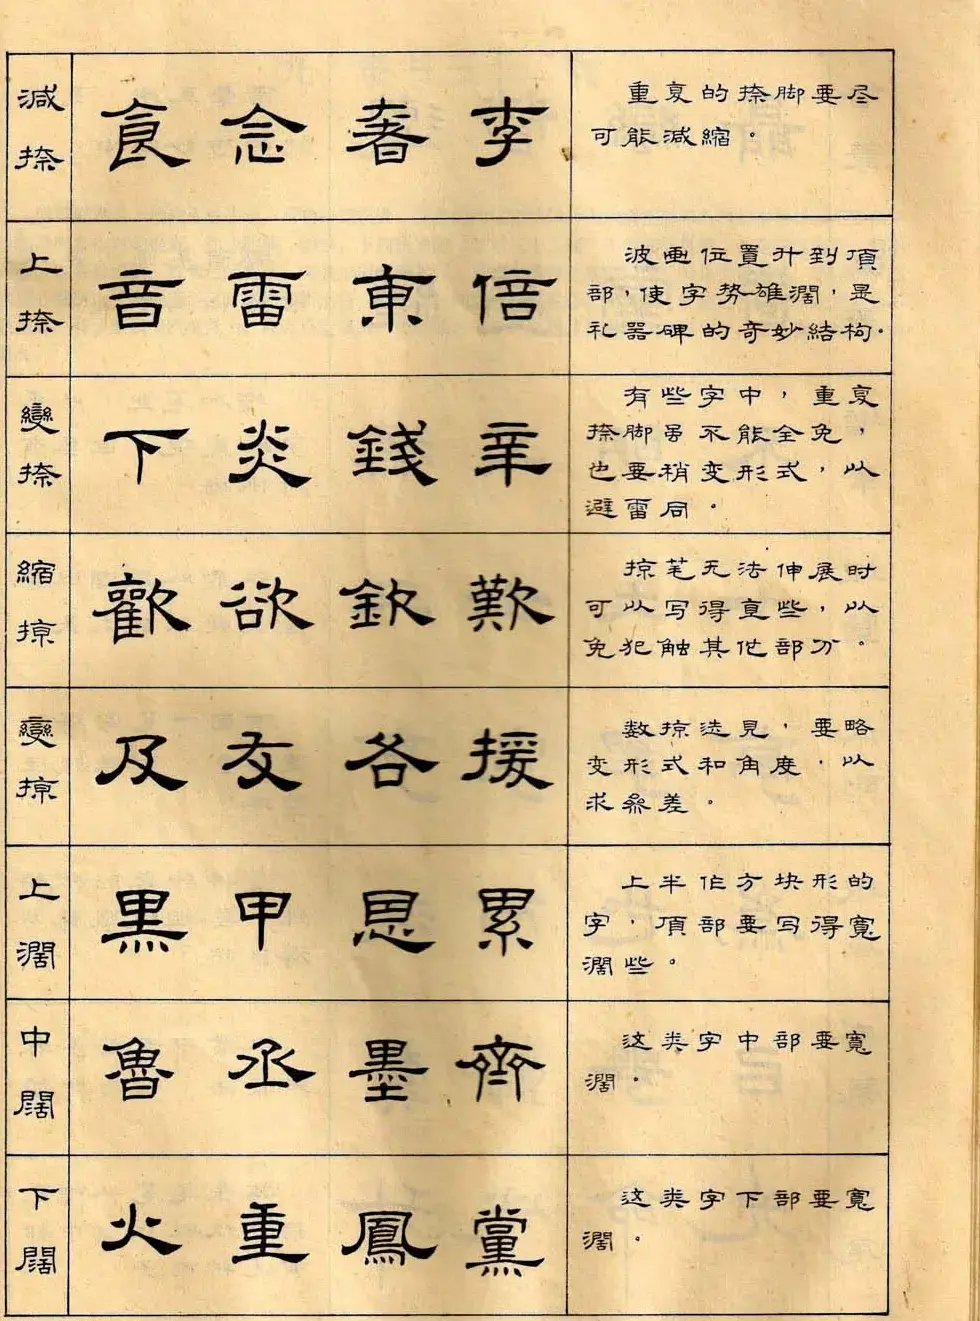 減捺
食 念 著 李
重复的捺脚要尽
可能減縮。
上捺
音 雷 東 倍
波画位置升到頂
部，使字势雄濶，是
礼器碑的奇妙結构．
變捺
下 炎 錢 辛
有些字中，重复
捺脚虽不能全免，
也要稍变形式，以
避雷同。
縮掠
歡 欲 欽 歎
掠笔无法伸展时
可以写得直些，以
免犯触其他部分。
變掠
及 友 各 援
数掠迭見，要略
变形式和角度，以
求叅差。
上濶
黑 甲 恩 累
上半作方块形的
字，頂部要写得寬
濶些。
中闊
魯 丞 墨 齊
这类字中部要寬
濶．
下闊
火 重 鳳 黨
这类字下部要寬
濶。